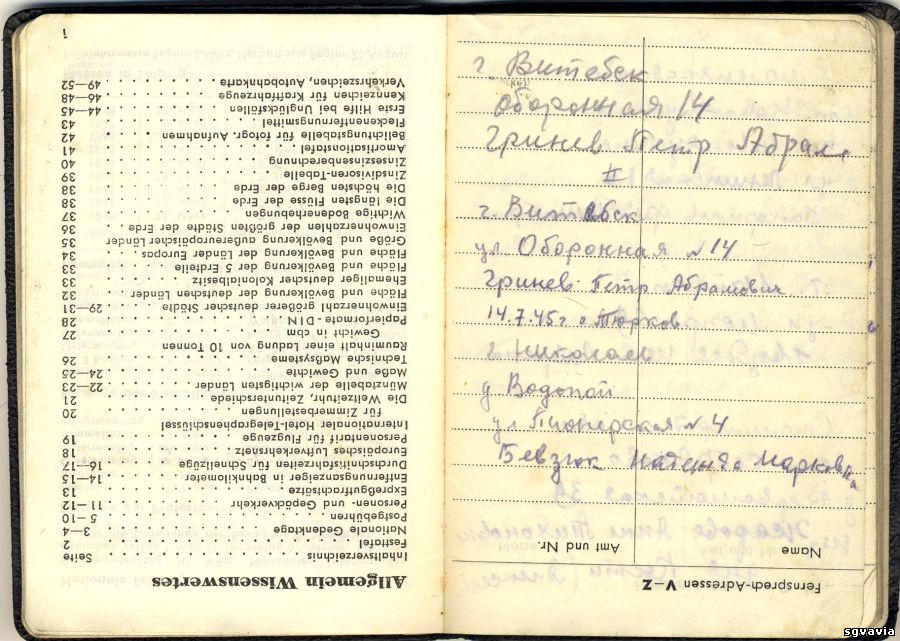 Allgemein Wissenswertes
Inhaltsverzeichnis: Seite
Festtafel 2
Nationale Gedenktage 3—4
Postgebühren 5—10
Personen- und Gepäckverkehr 11—12
Expreßgutfrachtsätze 13
Entfernungsanzeiger in Bahnkilometer 14—15
Durchschnittsfahrzeiten für Schnellzüge 16—17
Europäisches Luftverkehrsnetz 18
Personentarif für Flugzeuge 19
Internationaler Hotel-Telegraphenschlüssel
für Zimmerbestellungen 20
Die Weltzeituhr, Zeitunterschiede 21
Münztabelle der wichtigsten Länder 22—23
Maße und Gewichte 24—25
Technische Maßsysteme 26
Rauminhalt einer Ladung von 10 Tonnen
Gewicht in cbm 27
Papierformate - DIN 28
Einwohnerzahl größerer deutscher Städte 29—31
Fläche und Bevölkerung der deutschen Länder 32
Ehemaliger deutscher Kolonialbesitz 33
Fläche und Bevölkerung der 5 Erdteile 33
Fläche und Bevölkerung der Länder Europas 34
Größe und Bevölkerung außereuropäischer Länder 35
Einwohnerzahlen der größten Städte der Erde 36
Wichtige Bodenerhebungen 37
Die längsten Flüsse der Erde 38
Die höchsten Berge der Erde 38
Zinsdivisoren-Tabelle 39
Zinszinsenberechnung 40
Amortisationstafel 41
Belichtungstabelle für fotogr. Aufnahmen 42
Fleckenentfernungsmittel 43
Erste Hilfe bei Unglücksfällen 44—45
Kennzeichen für Kraftfahrzeuge 46—48
Verkehrszeichen, Autobahnkarte 49—52
1
г. Витебск
Оборонная 14
Гринев Петр Абрам.
II
г. Витебск
ул. Оборонная №14
Гринев Петр Абрамович
14.7.45г. г. Тюрков
г. Николаев
д Водопой
ул Пионерская №4
Бевзюк Надежда Марковна
Fernsprech-Adressen V—Z
Name Amt und Nr.
sgvavia